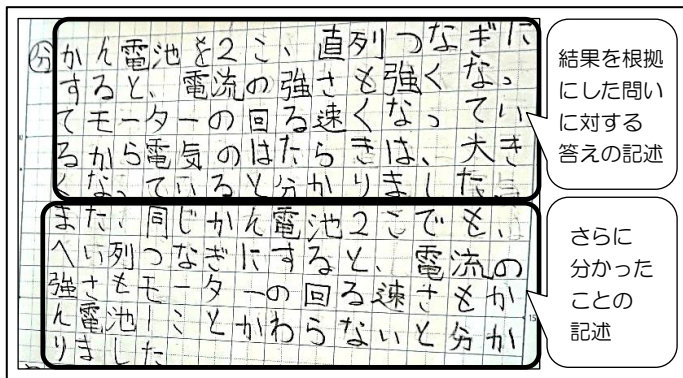 分 かん電池を2こ、直列つなぎに
すると、電流の強さも強くなっ
てモーターの回る速くなってい
るから電気のはたらきは、大き
くなっていると分かりました。
また、同じかん電池2こでも、
へい列つなぎにすると、電流の
強さもモーターの回る速さもか
ん電池1ことかわらないと分か
りました
結果を根拠
にした問い
に対する
答えの記述
さらに
分かった
ことの
記述